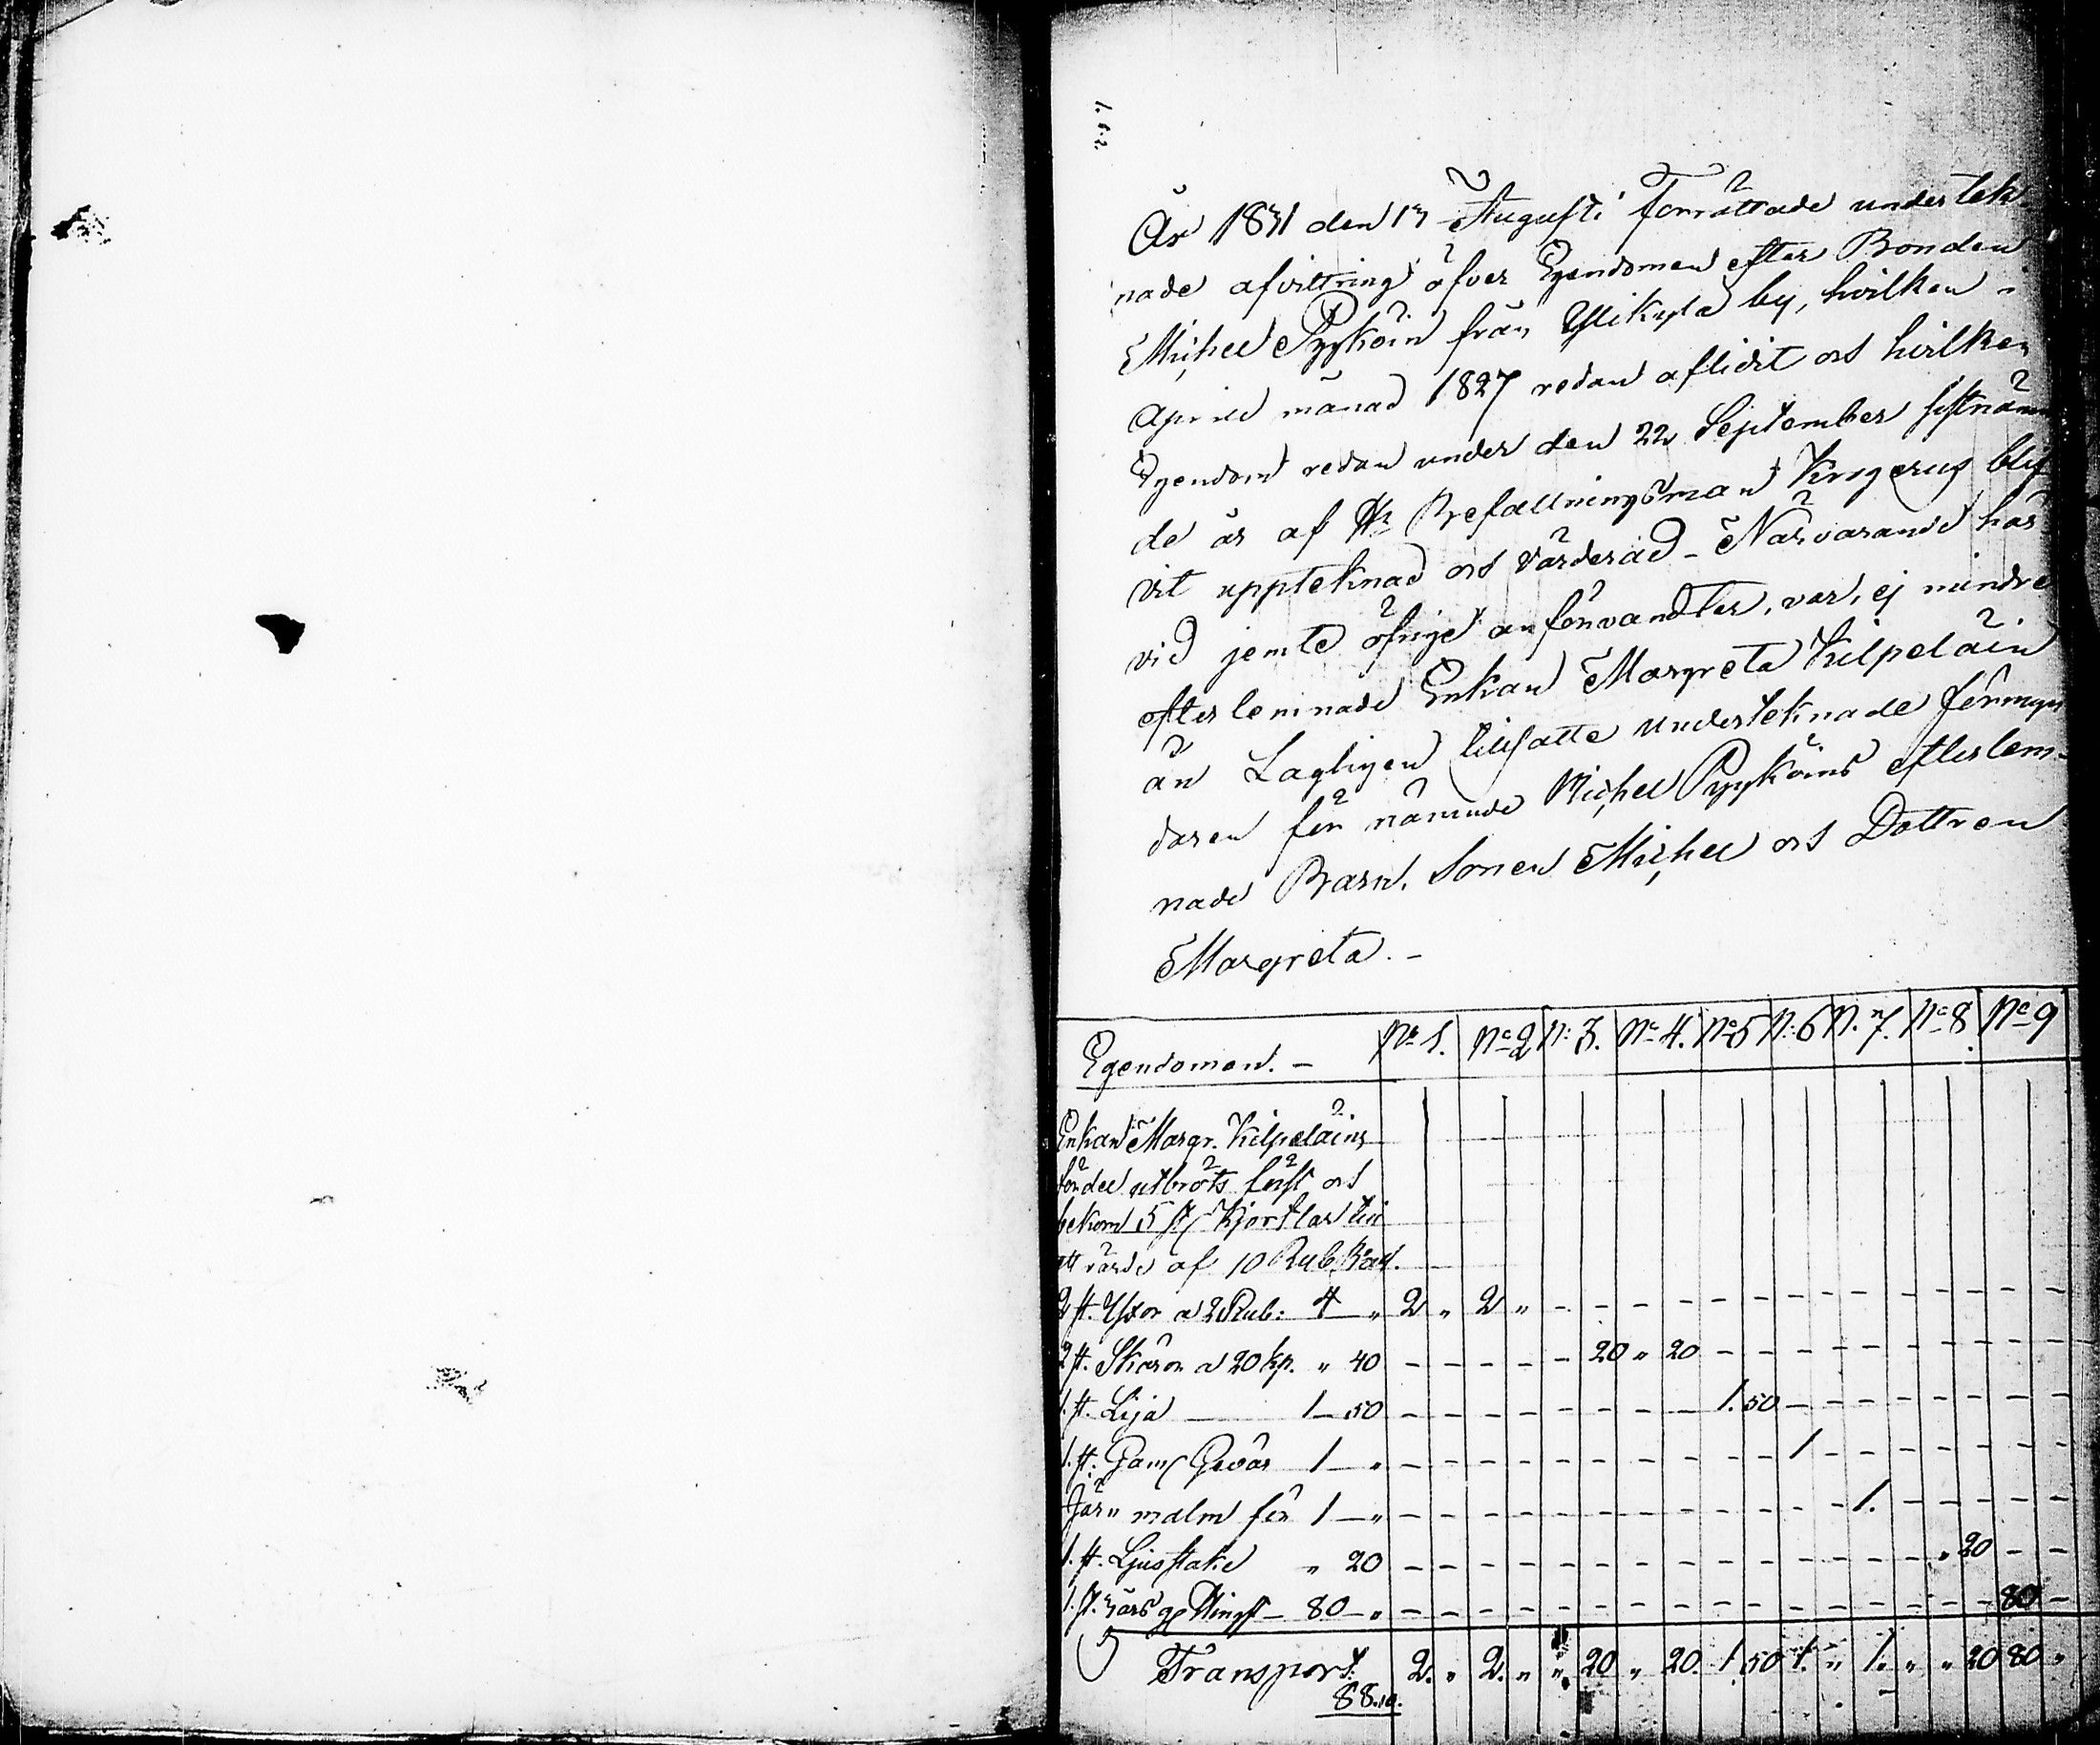 År 1831 den 13 Augusti Förrättade undertek
nade afvittring öfver Egendomen efter Bonden
Michel Pyyköin från Ylikylä by, hvilken
April månad 1827 redan aflidit och hvilken
Egendom redan under den 22 September sistnämn
de år af Hr Befallningsman Krogerus blif
vit uppteknad och värderad - Närvarande här
vid jemte öfrige anförvandter, var, ej mindre
efterlemnade Enkan Margreta Kilpeläin
än Lagligen tillsatte undertecknade förmyn
daren för nämnde Michel Pyyköins efterlem-
nade Barn. Sonen Michel och Dottren
Margreta. -
Egendomen. - No 1. No 2 N: 3. No 4. No 5 N: 6 N. 7. No 8 No 9
Enkan Margr. Kilpeläins
fördel utbröts först och
bekom 5 st Kjortlar till
ett värde af 10 Rub.
2 st. Yxor a 2 Rub: 4 — „ 2 „ 2 „ - - - - - - - - - - - - - -
2 st. Skäror a 20 kp. „ 40 - - - - - 20 „ 20 - - - - - - - - - -
1. st. Lija — 1 — 50 - - - - - - - - 1. 50 - - - - - - - -
1. st. Gam Gevär 1 — „ - - - - - - - - - - 1 - - - - - - -
Järn malm för 1 — „ - - - - - - - - - - - - 1. - - - - -
1. st. Ljusstake „ 20 - - - - - - - - - - - - - - „ 20 - -
1. st. 80 — „ - - - - - - - - - - - - - - - - 80 -
Transport: 2. „ 2. „ „ 20 „ 20. 1. 50 1. „ 1. „ „ 20 80 „
88.10.